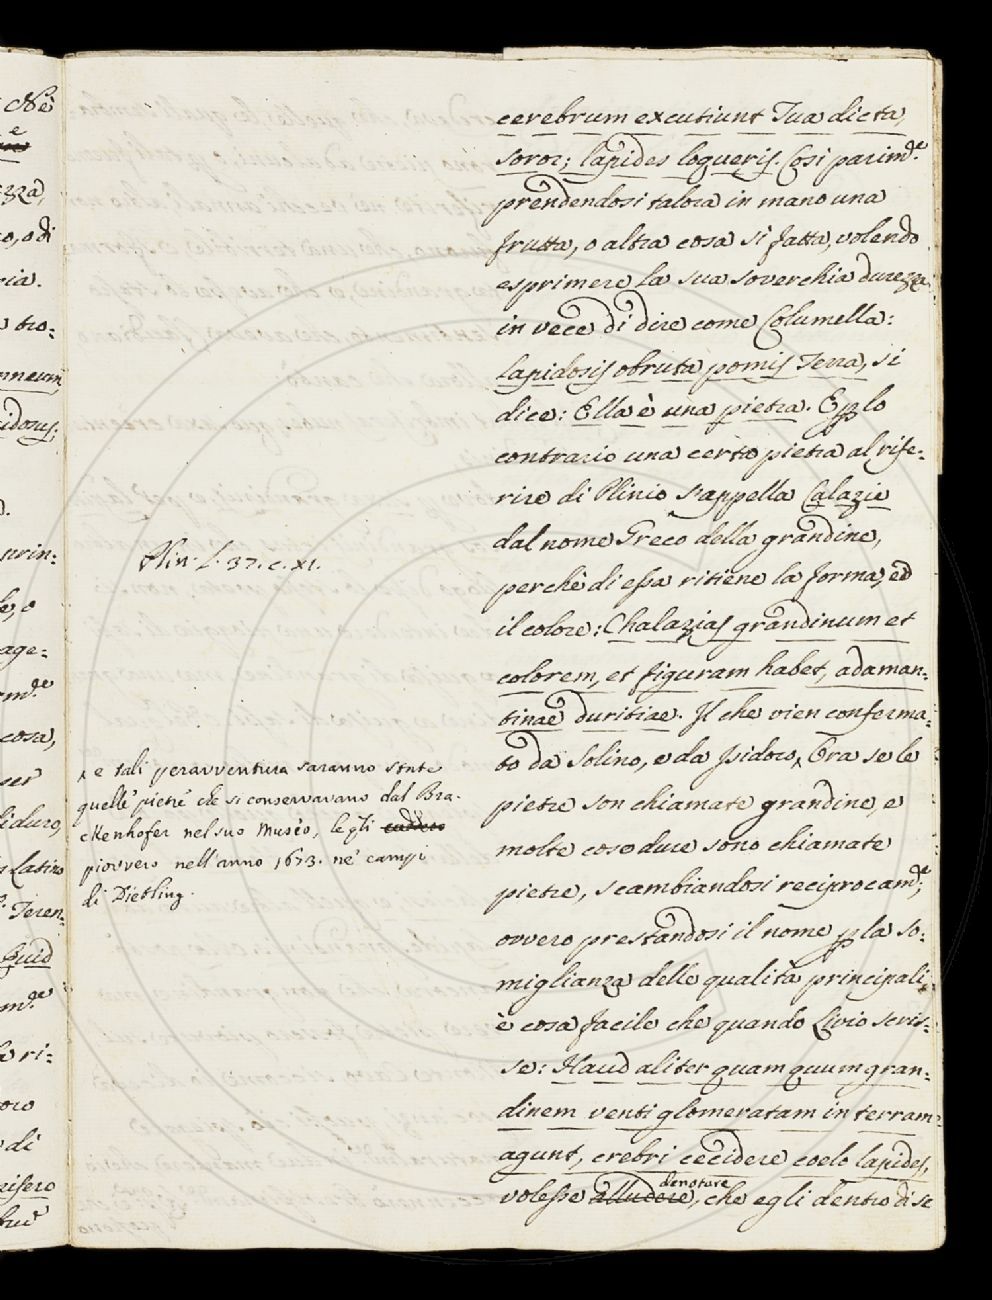 cerebrum excutiunt Tua dicta,
soror; lapides loqueris. Così parim.te
prendendosi talora in mano una
frutta, o altra cosa sì fatta, volendo
esprimere la sua soverchia durezza
in vece di dire come Columella:
Lapidosis obruta pomis Terra, si
dice: Ella è una pietra. E p lo
contrario una certa pietra al rife=
rire di Plinio s'appella Calazie
dal nome Greco della grandine,
perchè di essa ritiene la forma, ed
il colore: Chalazias grandinum et
colorem, et figuram habet, adaman=
tinae duritiae. Il che vien conferma=
to da Solino, e da Isidoro, Ora se le
pietre son chiamate grandine, e
molte cose dure sono chiamate
pietre, scambiandosi reciprocam.te,
ovvero prestandosi il nome p la so=
miglianza delle qualità principali,
è cosa facile che quando Livio scris=
se: Haud aliter quam quum gran=
dinem venti glomeratam in terram
agunt, crebri cecidere coelo lapides,
volesse alludere, che egli dentro di se
denotare
Plin. L. 37. c. XI.
x e tali peravventura saranno state
quelle pietre che si conservavano dal Bra=
ckenhofer nel suo Museo, le qli caddero
piovvero nell'anno 1673. ne' campi
di Dietling.
Nè
e
ria.
nneum
idosus;
prin=
le, o
age=
cosa,
li duro,
Latino
Teren=
Quid
la ri=
di